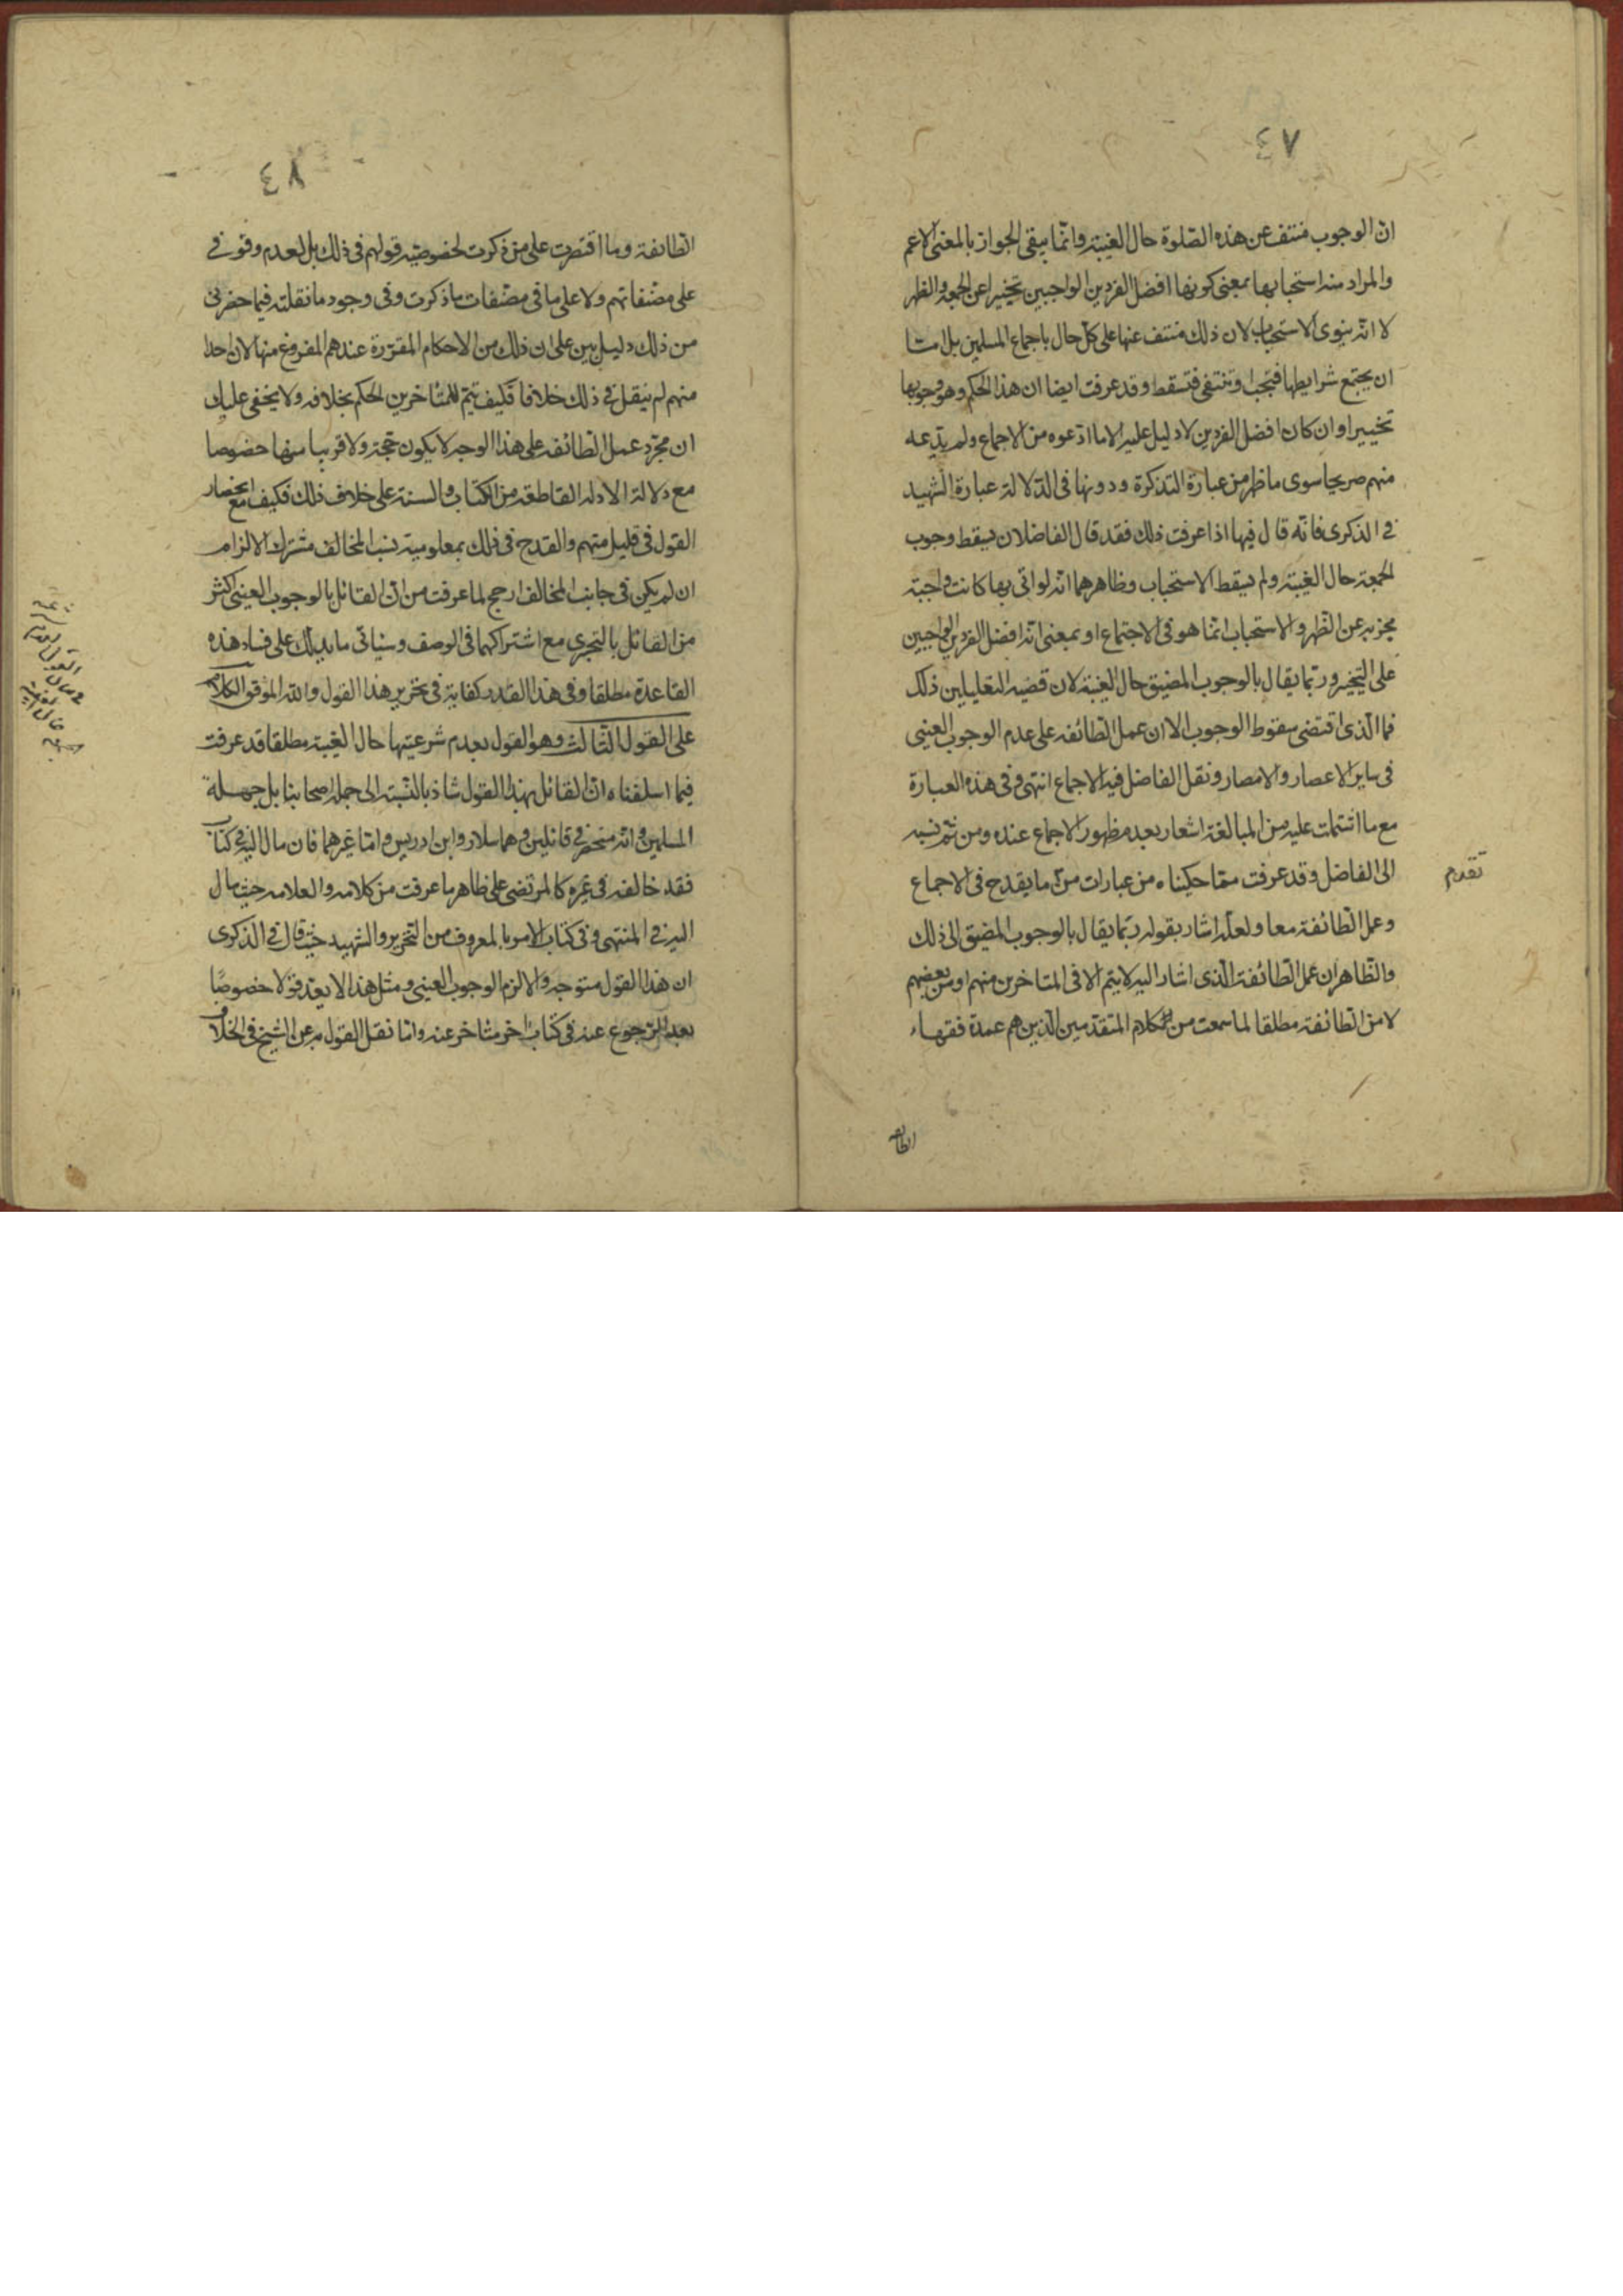 ٤٧
ان الوجوب منتف عن هذه الصلوة حال الغيبة وانما يبقى الجواز بالمعنى الاعم
والمراد منه استحبابها بمعنى كونها افضل الفردين الواجبين تخييرا عن الجمعة والظهر
لا انه ينوى الاستحباب لان ذلك منتف عنها على كل حال باجماع المسلمين بل امّا
ان يجتمع شرايطها فتجب او تنتفى فتسقط وقد عرفت ايضا ان هذا الحكم وهو وجوبها
تخييرا وان كان افضل الفردين لا دليل عليه الا ما ادعوه من الاجماع ولم يدّعه
منهم صريحا سوى ما ظهر من عبارة التذكرة ودونها فى الدلالة عبارة الشهيد
فى الذكرى فانه قال فيها اذا عرفت ذلك فقد قال الفاضلان يسقط وجوب
الجمعة حال الغيبة ولم يسقط الاستحباب وظاهرهما انه لو اتى بها كانت واجبة
مجزية عن الظهر والاستحباب انما هو فى الاجتماع او بمعنى انه افضل الفردين الواجبين
على التخيير وربّما يقال بالوجوب المضيق حال الغيبة لان قضية التعليلين ذلك
فما الذى اقتضى سقوط الوجوب الا ان عمل الطائفة على عدم الوجوب العينى
فى ساير الاعصار والامصار ونقل الفاضل فيه الاجماع انتهى وفى هذه العبارة
مع ما اشتملت عليه من المبالغة اشعار بعدم ظهور الاجماع عنده ومن ثمّ نسبه
الى الفاضل وقد عرفت ممّا حكيناه من عبارات من ما يقدح فى الاجماع
تقدم
وعمل الطائفة معا ولعله اشار بقوله ربّما يقال بالوجوب المضيق الى ذلك
والظاهر ان عمل الطائفة الذى اشار اليه لا يتم الا فى المتاخرين منهم او من بعضهم
لا من الطائفة مطلقا لما سمعت من كلام المتقدمين الذين هم عمدة فقهاء
الطائفة
٤٨
الطائفة وما اقتصرت على من ذكرت لخصوصية قولهم فى ذلك بل لعدم وقوفى
على مصنفاتهم ولا على ما فى مصنفات ما ذكرت وفى وجود ما نقلته فيما حضرنى
من ذلك دليل بين على ان ذلك من الاحكام المقررة عندهم المفروغ منها لان احدا
منهم لم ينقل فى ذلك خلافا فكيف يتم للمتاخرين الحكم بخلافه ولا يخفى عليك
ان مجرد عمل الطائفة على هذا الوجه لا يكون حجة ولا قريبا منها خصوصا
مع دلالة الادلة القاطعة من الكتاب والسنة على خلاف ذلك فكيف مع انحصار
القول فى قليل منهم والقدح فى ذلك بمعلومية نسب المخالف مشترك الالزام
ان لم يكن فى جانب المخالف ارجح لما عرفت من ان القائل بالوجوب العينى اكثر
من القائل بالتخيرى مع اشتراكهما فى الوصف وسياتى ما يدلك على فساد هذه
القاعدة مطلقا وفى هذا القدر كفاية فى تحرير هذا القول والله الموفق الكلام
على القول الثالث وهو القول بعدم شرعيتها حال الغيبة مطلقا قد عرفت
فيما اسلفناه ان القائل بهذا القول شاذ بالنسبة الى جملة اصحابنا بل جملة
المسلمين وانه منحصر فى قائلين وهما سلار وابن ادريس وامّا غيرهما فان مال اليه فى كتاب
فقد خالفه فى غيره كالمرتضى على ظاهر ما عرفت من كلامه والعلامة حيث مال
اليه فى المنتهى وفى كتاب الامر بالمعروف من التحرير والشهيد حيث قال فى الذكرى
ان هذا القول متوجه والا لزم الوجوب العينى ومثل هذا لا يعد قولا خصوصًا
بعد الرجوع عنه فى كتاب اخر متاخر عنه وامّا نقل القول به عن الشيخ فى الخلاف